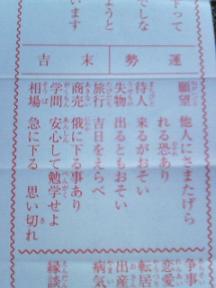 下って
でしな
ようと
います
運勢
末吉
願望 他人にさまたげら
れる恐あり
待人 来るがおそい
失物 出るともおそい
旅行 吉日をえらべ
商売 俄に下る事あり
学問 安心して勉学せよ
相場 急に下る 思い切れ
争事
恋愛
転居
出産
病気
縁談